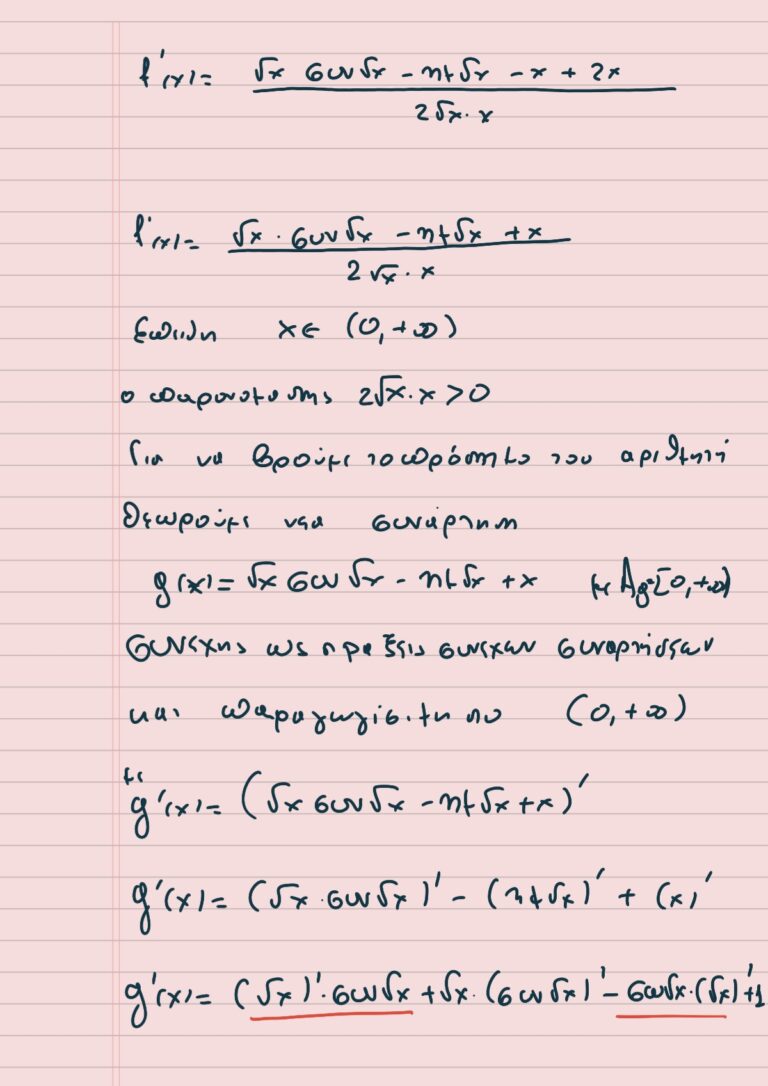 f'(x) = (√x συν√x - ημ√x - x + 2x) / (2√x · x)
f'(x) = (√x · συν√x - ημ√x + x) / (2√x · x)
Επειδη x ∈ (0, +∞)
ο παρονομαστης 2√x · x > 0
Για να βρούμε το πρόσημο του αριθμητή
θεωρούμε νεα συνάρτηση
g(x) = √x συν√x - ημ√x + x με Ag=[0, +∞)
συνεχης ως πραξεις συνεχων συναρτήσεων
και παραγωγίσιμη στο (0, +∞)
με
g'(x) = (√x συν√x - ημ√x + x)'
g'(x) = (√x · συν√x)' - (ημ√x)' + (x)'
g'(x) = (√x)' · συν√x + √x · (συν√x)' - συν√x · (√x)' + 1